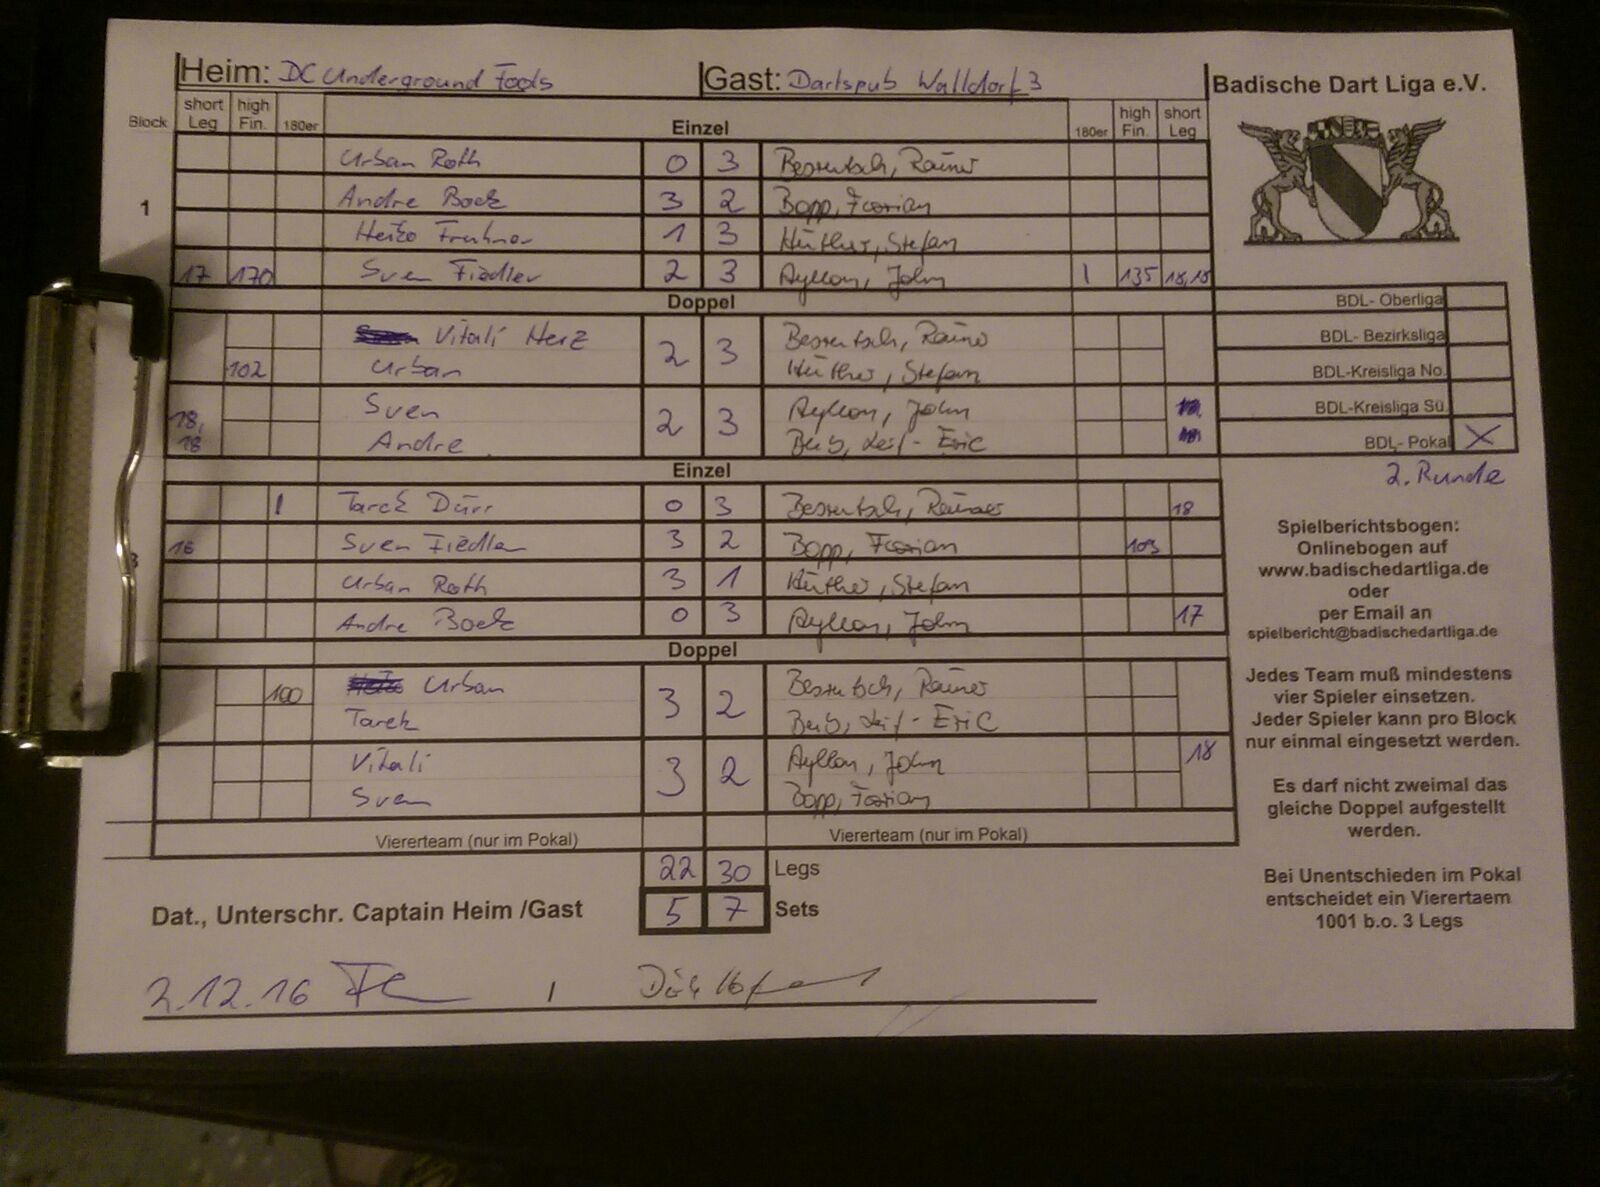 Heim: DC Underground Fools Gast: Dartspub Walldorf 3 Badische Dart Liga e.V.
Block short Leg high Fin. 180er Einzel 180er high Fin. short Leg
Urban Roth 0 3 Besrutsch, Rainer
1 Andre Bock 3 2 Bopp, Florian
Heiko 1 3 Hüther, Stefan
17 170 Sven Fiedler 2 3 Ayllon, John 1 135 18,18
Doppel
Vitali Herz 2 3 Besrutsch, Rainer
102 Urban Hüther, Stefan
18, Sven 2 3 Ayllon, John
18 Andre Beib, Leif-Eric
Einzel
1 Tarek Dürr 0 3 Besrutsch, Rainer 18
16 Sven Fiedler 3 2 Bopp, Florian 103
Urban Roth 3 1 Hüther, Stefan
Andre Bock 0 3 Ayllon, John 17
Doppel
100 Urban 3 2 Besrutsch, Rainer
Tarek Beib, Leif-Eric
Vitali 3 2 Ayllon, John 18
Sven Bopp, Florian
Viererteam (nur im Pokal) Viererteam (nur im Pokal)
22 30 Legs
Dat., Unterschr. Captain Heim /Gast 5 7 Sets
2.12.16 /
BDL- Oberliga
BDL- Bezirksliga
BDL-Kreisliga No.
BDL-Kreisliga Sü.
BDL- Pokal X
2. Runde
Spielberichtsbogen:
Onlinebogen auf
www.badischedartliga.de
oder
per Email an
spielbericht@badischedartliga.de
Jedes Team muß mindestens
vier Spieler einsetzen.
Jeder Spieler kann pro Block
nur einmal eingesetzt werden.
Es darf nicht zweimal das
gleiche Doppel aufgestellt
werden.
Bei Unentschieden im Pokal
entscheidet ein Vierertaem
1001 b.o. 3 Legs